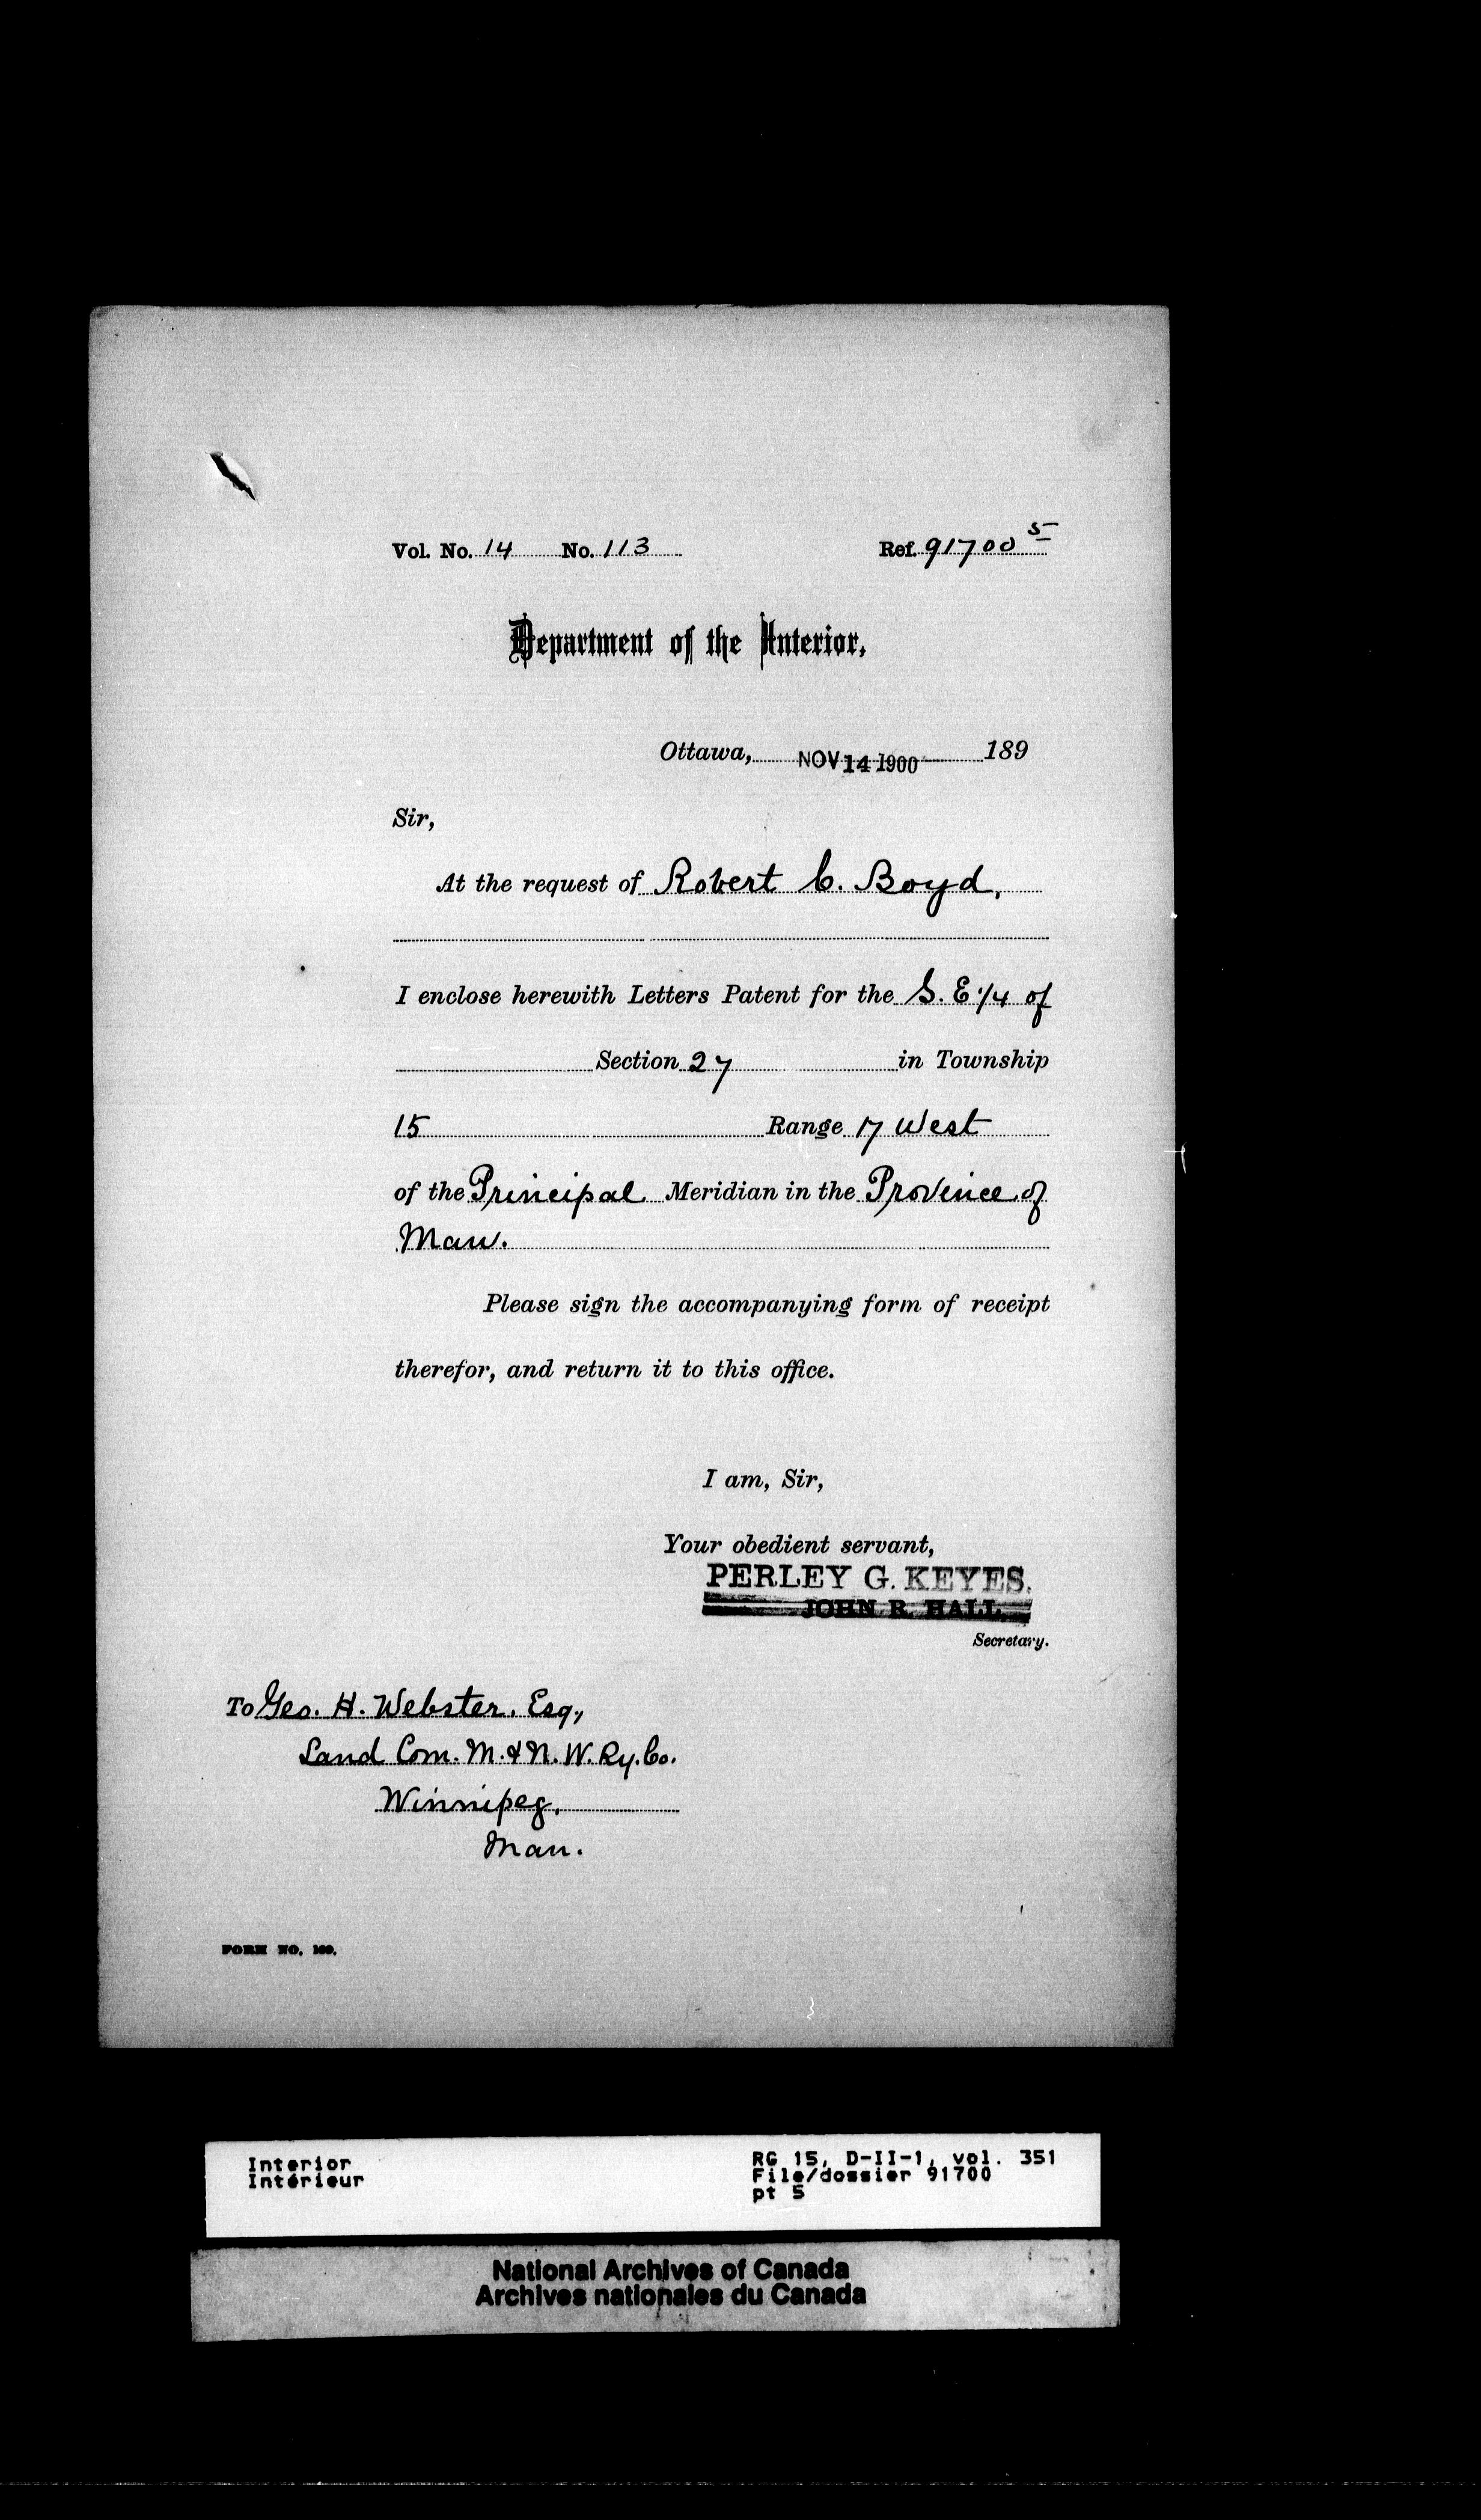 Vol. No. 14 No. 113 Ref. 91700 5
Department of the Interior,
Ottawa, NOV 14 1900 189
Sir,
At the request of Robert C. Boyd,
I enclose herewith Letters Patent for the S. E 1/4 of
Section 27 in Township
15 Range 17 West
of the Principal Meridian in the Province of
Man.
Please sign the accompanying form of receipt
therefor, and return it to this office.
I am, Sir,
Your obedient servant,
PERLEY G. KEYES.
JOHN R. HALL
Secretary.
To Geo. H. Webster, Esq.,
Land Com. M. & N. W. Ry. Co.
Winnipeg,
Man.
FORM NO. 160.
Interior RG 15, D-II-1, vol. 351
Intérieur File/dossier 91700
pt 5
National Archives of Canada
Archives nationales du Canada